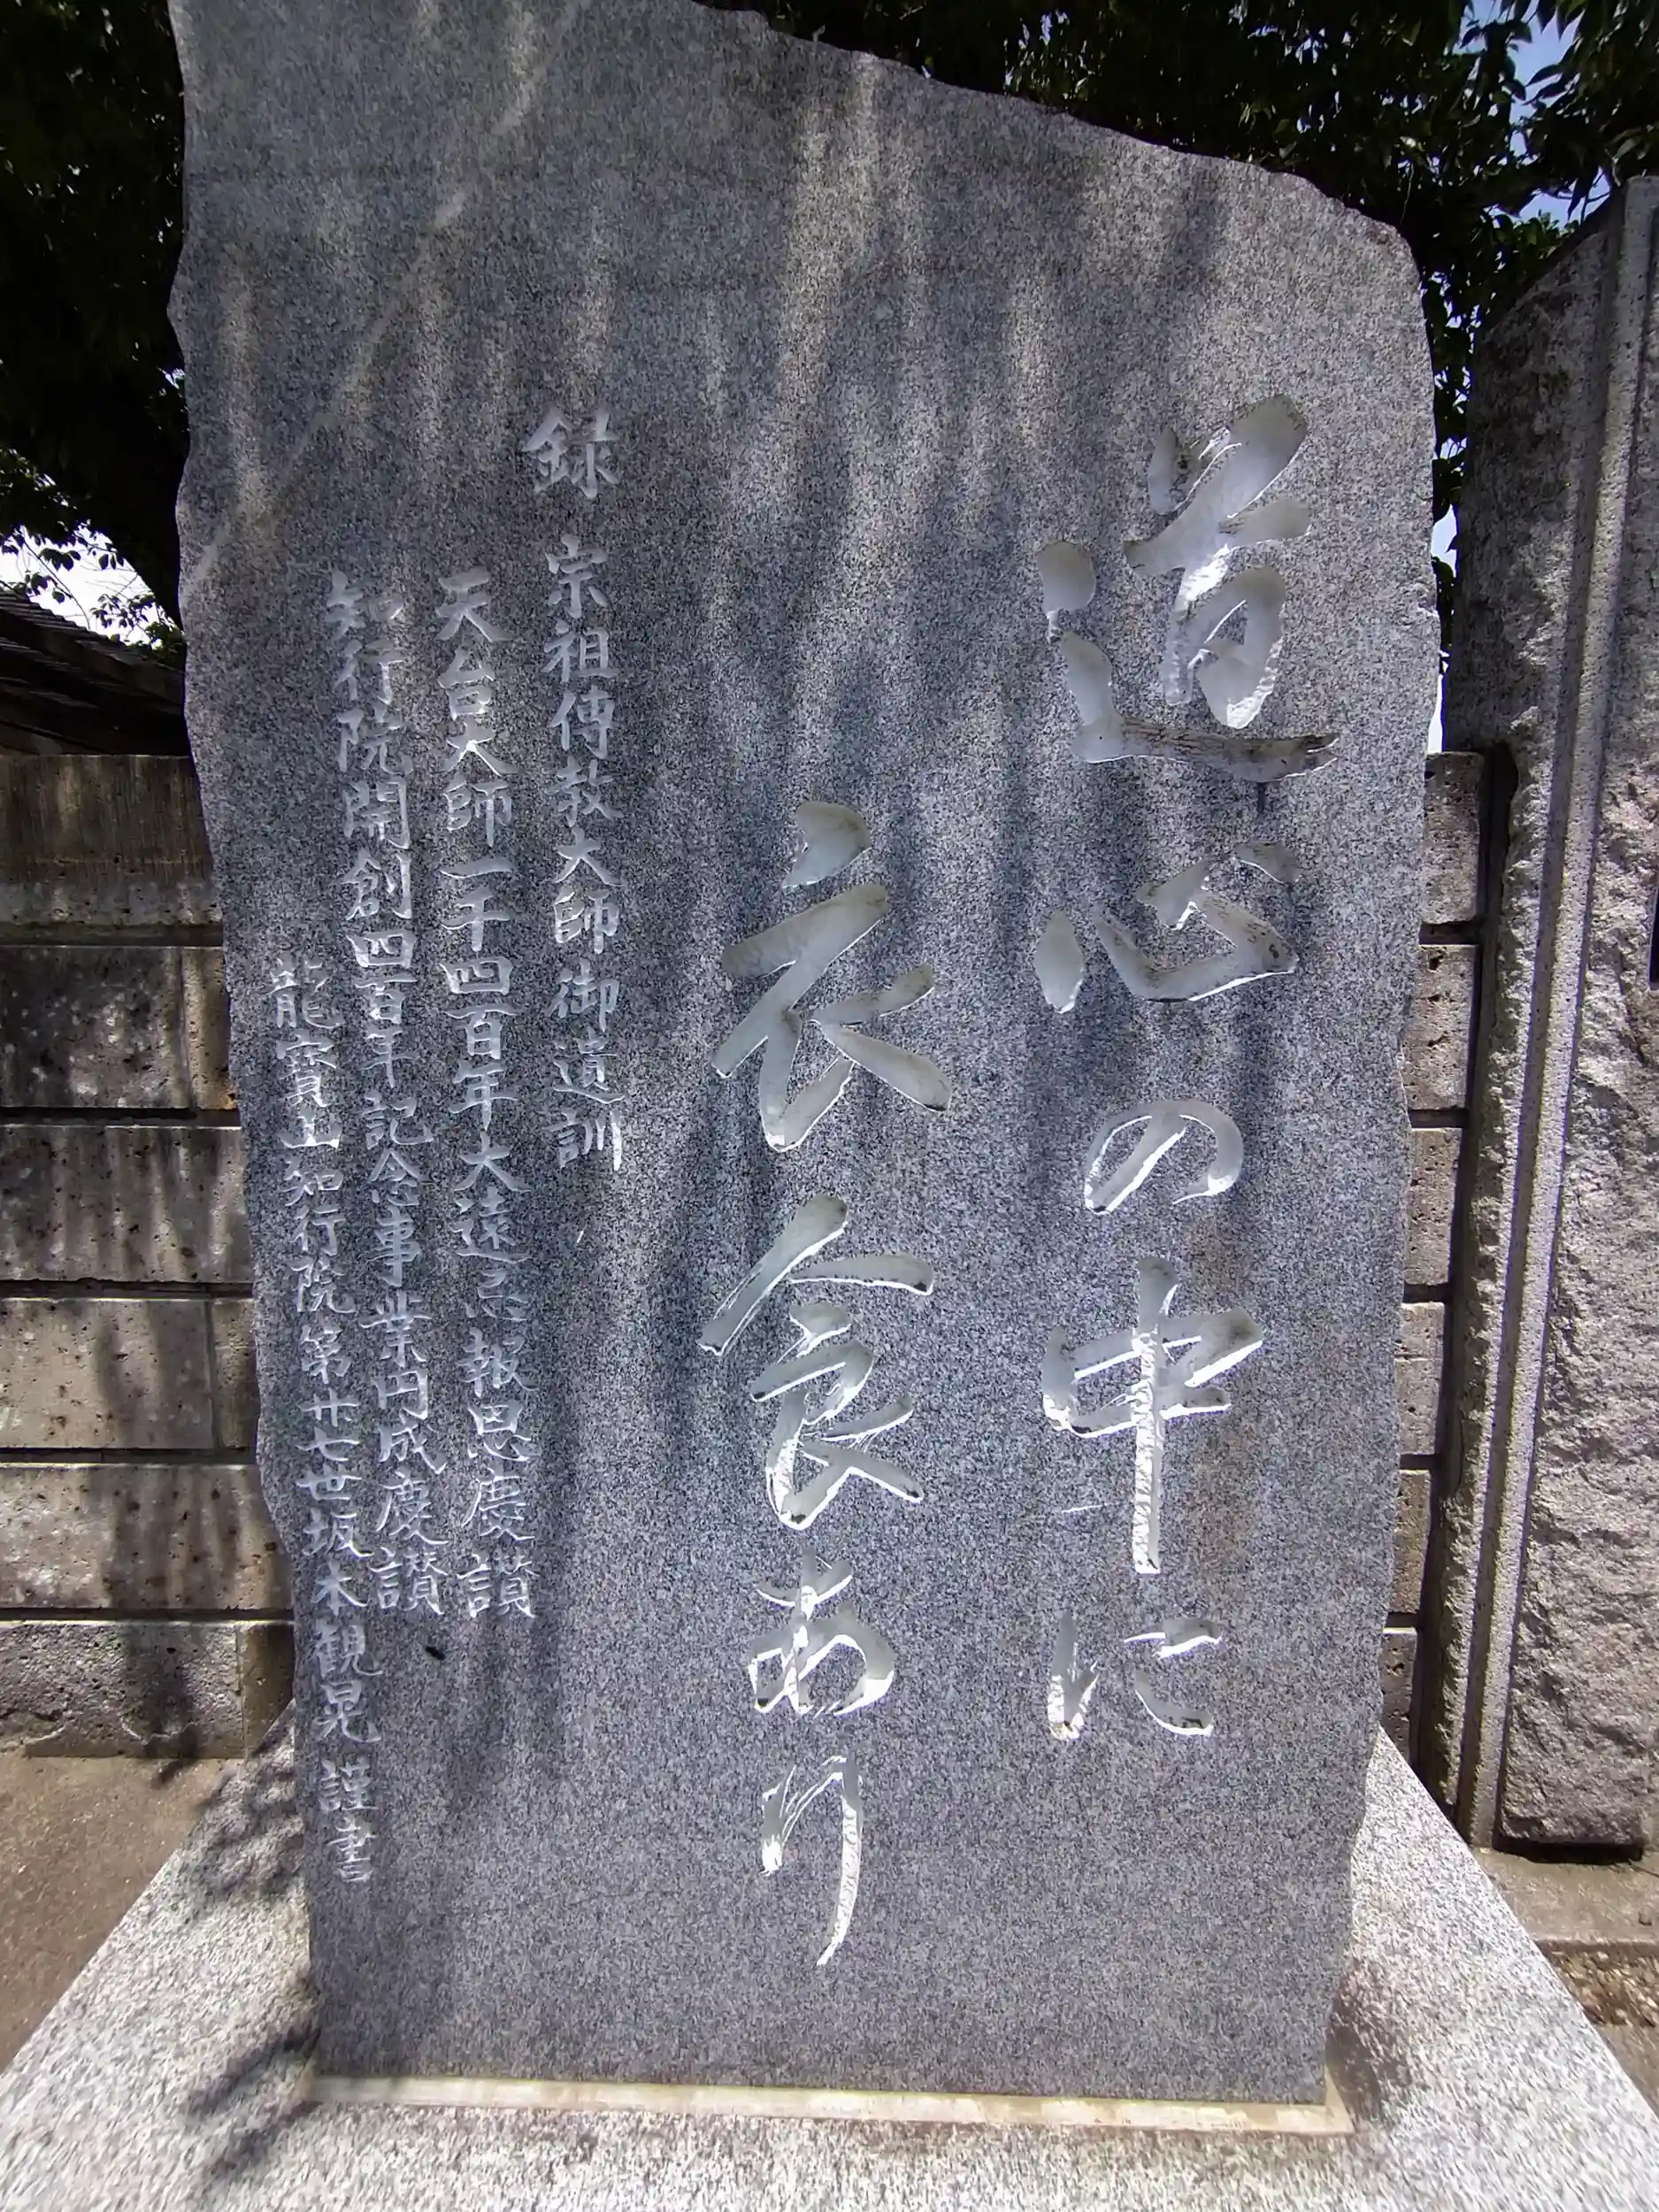 道心の中に
衣食あり
録 宗祖傳教大師御遺訓
天台大師一千四百年大遠忌報恩慶讃
知行院開創四百年記念事業円成慶讃
龍寳山知行院第廿七世坂本観晃謹書